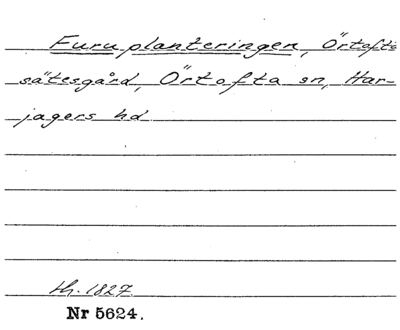 Furuplanteringen, Örtofta
sätesgård, Örtofta sn, Har-
jagers hd
th. 1827
Nr 5624.